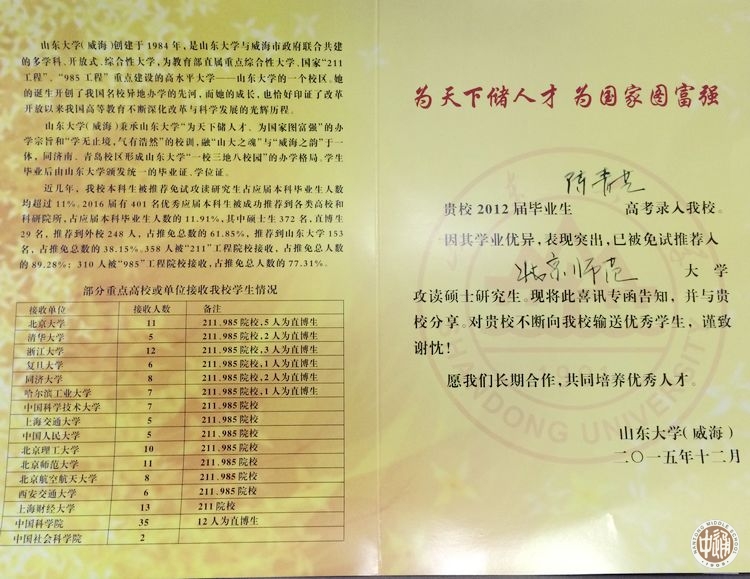 山东大学(威海)创建于1984年,是山东大学与威海市政府联合共建
的多学科、开放式、综合性大学,为教育部直属重点综合性大学、国家“211
工程”、“985工程”重点建设的高水平大学——山东大学的一个校区。她
的诞生开创了我国名校异地办学的先河,而她的成长,也恰好印证了改革
开放以来我国高等教育不断深化改革与科学发展的光辉历程。
山东大学(威海)秉承山东大学“为天下储人才、为国家图富强”的办
学宗旨和“学无止境,气有浩然”的校训,融“山大之魂”与“威海之韵”于一
体,同济南、青岛校区形成山东大学“一校三地八校园”的办学格局。学生
毕业后由山东大学颁发统一的毕业证、学位证。
近几年,我校本科生被推荐免试攻读研究生占应届本科毕业生人数
均超过11%。2016届有401名优秀应届本科生被成功推荐到各类高校和
科研院所,占应届本科毕业生的11.91%,其中硕士生372名,直博生
29名,推荐到外校248人,占推免总数的61.85%,推荐到山东大学153
名,占推免总数的38.15%。358人被“211”工程院校接收,占推免总人数
的89.28%;310人被“985”工程院校接收,占推免总人数的77.31%。
部分重点高校或单位接收我校学生情况
接收单位 接收人数 备注
北京大学 11 211、985院校,5人为直博生
清华大学 5 211、985院校,2人为直博生
浙江大学 12 211、985院校,3人为直博生
复旦大学 6 211、985院校,1人为直博生
同济大学 8 211、985院校,2人为直博生
哈尔滨工业大学 7 211、985院校,1人为直博生
中国科学技术大学 7 211、985院校
上海交通大学 5 211、985院校
中国人民大学 5 211、985院校
北京理工大学 10 211、985院校
北京师范大学 11 211、985院校
北京航空航天大学 8 211、985院校
西安交通大学 6 211、985院校
上海财经大学 13 211院校
中国科学院 35 12人为直博生
中国社会科学院 2
为天下储人才 为国家图富强
贵校2012届毕业生 高考录入我校。
因其学业优异,表现突出,已被免试推荐入
北京师范 大学
攻读硕士研究生。现将此喜讯专函告知,并与贵
校分享。对贵校不断向我校输送优秀学生,谨致
谢忱!
愿我们长期合作,共同培养优秀人才。
山东大学(威海)
二〇一五年十二月